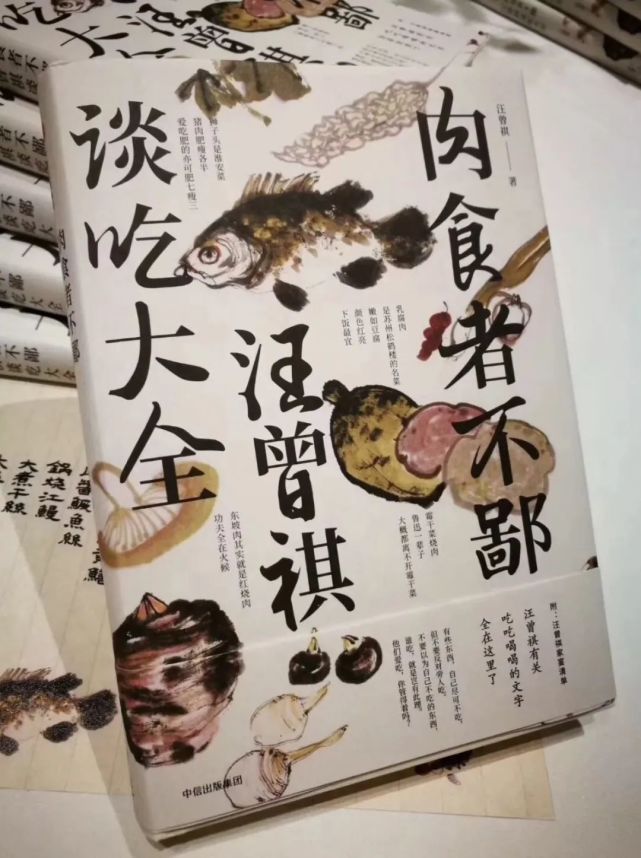 肉食者不鄙
汪曾祺
谈吃大全
汪曾祺——著
狮子头是淮安菜
猪肉肥瘦各半
爱吃肥的亦可肥七瘦三
乳腐肉
是苏州松鹤楼的名菜
嫩如豆腐
颜色红亮
下饭最宜
霉干菜烧肉
鲁迅一辈子
大概都离不开霉干菜
东坡肉其实就是红烧肉
功夫全在火候
附：汪曾祺家宴清单
汪曾祺有关
吃吃喝喝的文字
全在这里了
有些东西，自己尽可不吃，
但不要反对旁人吃。
不要以为自己不吃的东西，
谁吃，就是岂有此理。
他们爱吃，你管得着吗？
中信出版集团
锅烧江鳗
大煮干丝